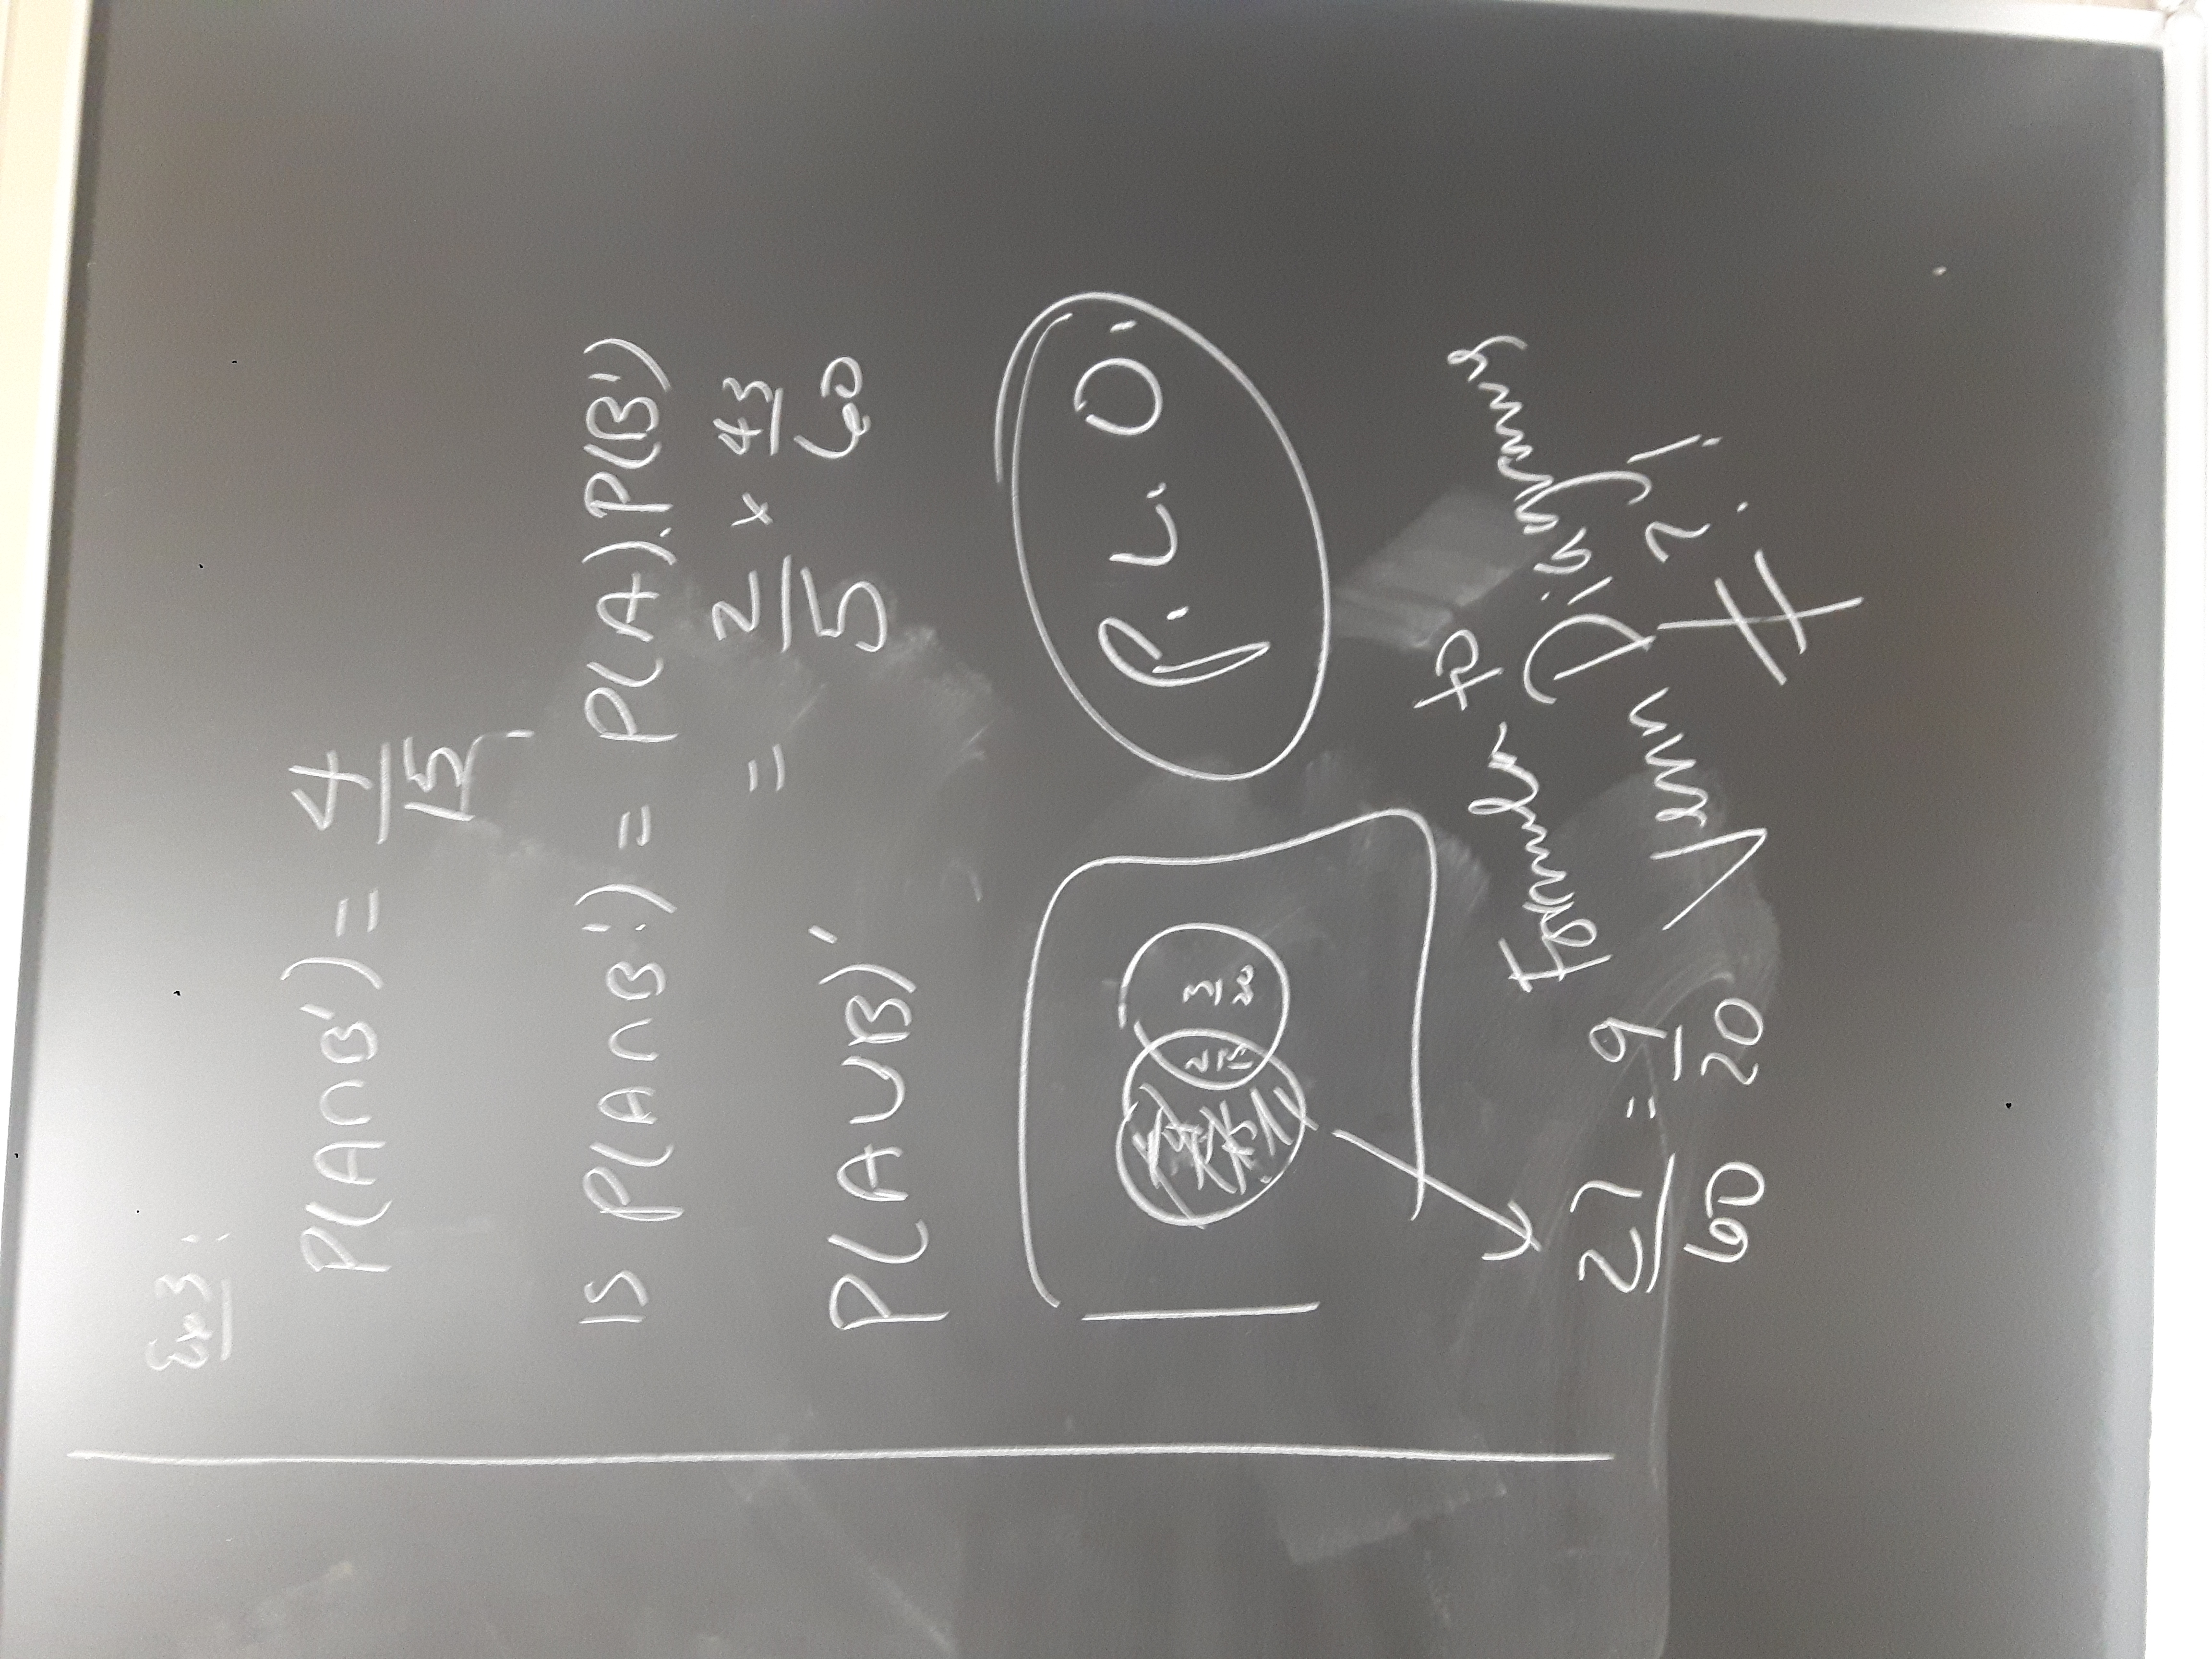 Ex 3:
P(A∩B') = 4/15
IS P(A∩B') = P(A).P(B')
= 2/5 × 43/60
P(A∪B)'
P.L.O.
2/15 3/20
27/60 = 9/20
Formula &
Venn Diagram
≠